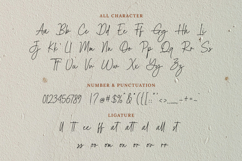 ALL CHARACTER
Aa Bb Cc Dd Ee Ff Gg Hh Ii
Jj Kk Ll Mm Nn Oo Pp Qq Rr Ss
Tt Uu Vv Ww Xx Yy Zz
NUMBER & PUNCTUATION
0123456789
LIGATURE
ll tt ee ff at att al all st